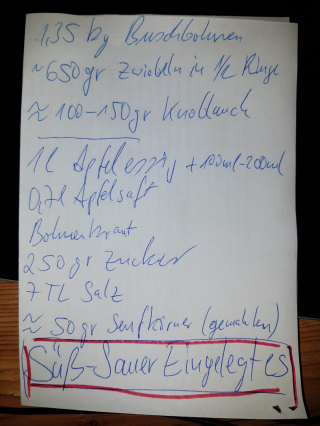 1.35 kg Buschbohnen
~650gr Zwiebeln in 1/2 Ringe
≈ 100-150gr Knoblauch
1l Apfelessig +100ml-200ml
0,7l Apfelsaft
Bohnenkraut
250gr Zucker
7 TL Salz
≈ 50gr Senfkörner (gemahlen)
Süß-Sauer Eingelegtes